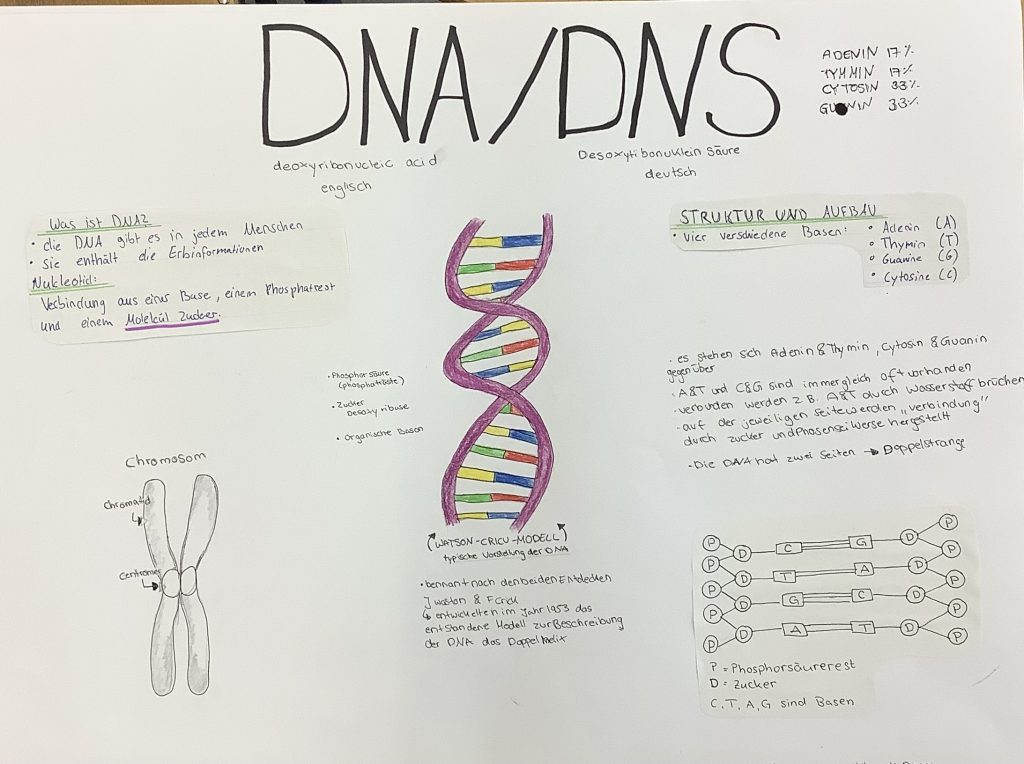 DNA/DNS
deoxyribonucleic acid
englisch
Desoxyribonuklein Säure
deutsch
ADENIN 17%
TYMMIN 17%
CYTOSIN 33%
GUANIN 33%
Was ist DNA?
• die DNA gibt es in jedem Menschen
• Sie enthält die Erbinformationen
Nukleotid:
Verbindung aus einer Base, einem Phosphatrest
und einem Molekül Zucker.
STRUKTUR UND AUFBAU
• Vier verschiedene Basen:
• Adenin (A)
• Thymin (T)
• Guanine (G)
• Cytosine (C)
• Phosphor säure
(phosphatreste)
• Zucker
Desoxy ribuse
• Organische Basen
· es stehen sich Adenin & Thymin, Cytosin & Guanin
gegenüber
· A&T und C&G sind immer gleich oft vorhanden
· verbunden werden z.B. A&T durch Wasserstoff brüchen
· auf der jeweiligen seite werden "verbindung"
durch zucker und hergestellt
• Die DNA hat zwei Seiten → Doppelstränge
Chromosom
Chromatid
Centromer
(WATSON-CRICU-MODELL)
typische Vorstellung der DNA
• bennant nach den beiden Entdecken
J waston & F Crick
↳ entwickelten im Jahr 1953 das
entstandene Modell zur Beschreibung
der DNA das Doppelhelix
P D C G D P
P D T A D P
P D G C D P
P D A T D P
P P
P = Phosphorsäurerest
D = Zucker
C, T, A, G sind Basen